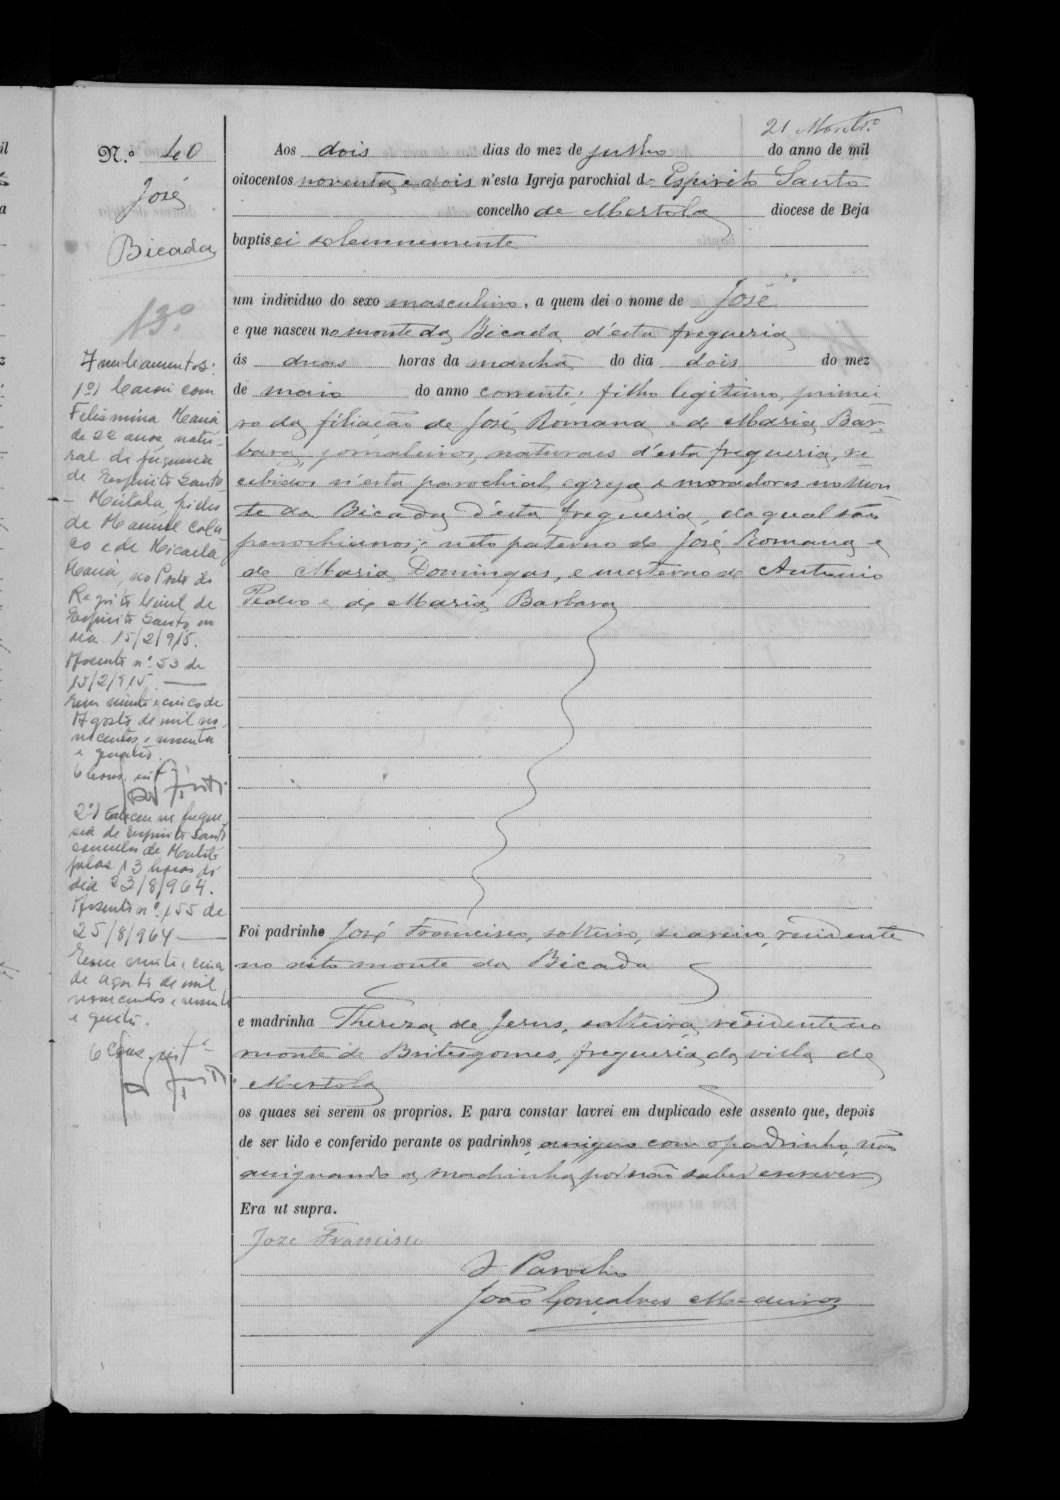 21
N.º 40
José
Bicada
13º
Aos dois dias do mez de julho do anno de mil
oitocentos noventa e dois n'esta Igreja parochial de Espirito Santo
concelho de Mertola diocese de Beja
baptisei solemnemente
um individuo do sexo masculino, a quem dei o nome de José
e que nasceu no monte da Bicada d'esta freguezia
ás duas horas da manhã do dia dois do mez
de maio do anno corrente, filho legitimo, primei
ro da filiação de José Romana e de Maria Bar-
bara, jornaleiros, naturaes d'esta freguezia, re
cebidos n'esta parochial egreja e moradores no Mon
te da Bicada d'esta freguezia, da qual são
parochianos; neto paterno de José Romana e
de Maria Domingas, e materno de Antonio
Pedro e de Maria Barbara
Averbamentos:
1º) Casou com
Felismina Maria
de 22 anos, natu-
ral da freguesia
de Espirito Santo
- Mértola, filha
de Manuel Cola-
ço e de Micaela
Maria, no Posto do
Registo Civil de
Espirito Santo, no
dia 15/2/915.
Assento nº 53 de
15/2/915.
Em vinte e cinco de
Agosto de mil no-
vecentos e sessenta
e quatro.
2º) Faleceu na fregue-
sia de Espirito Santo
concelho de Mértola
pelas 13 horas do
dia 23/8/964.
Assento nº 155 de
25/8/964
Em vinte e cinco
de Agosto de mil
novecentos e sessenta
e quatro.
Foi padrinho José Francisco, solteiro, seareiro, residente
no dito monte da Bicada
e madrinha Thereza de Jesus, solteira, residente no
monte de Britesgomes, freguezia da villa de
Mertola
os quaes sei serem os proprios. E para constar lavrei em duplicado este assento que, depois
de ser lido e conferido perante os padrinhos, assigno com o padrinho, não
assignando a madrinha por não saber escrever
Era ut supra.
Joze Francisco
O Parocho
João Gonçalves Medeiros